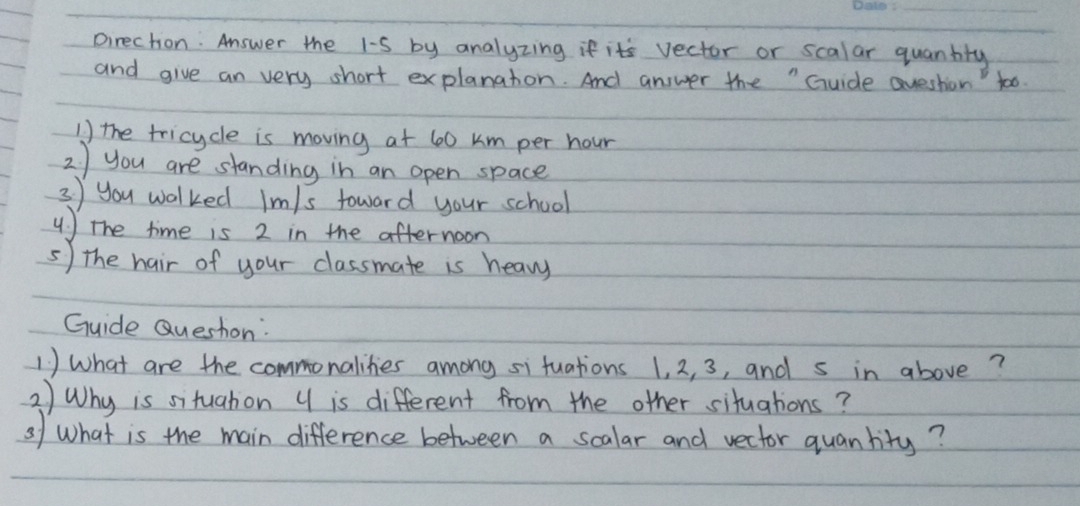 Date:
Direction: Answer the 1-5 by analyzing if it's vector or scalar quantity
and give an very short explanation. And answer the "Guide Question" too.
1.) The tricycle is moving at 60 km per hour
2.) You are standing in an open space
3.) You walked 1m/s toward your school
4.) The time is 2 in the afternoon
5) The hair of your classmate is heavy
Guide Question:
1.) What are the commonalities among situations 1,2,3, and 5 in above?
2) Why is situation 4 is different from the other situations?
3) What is the main difference between a scalar and vector quantity?